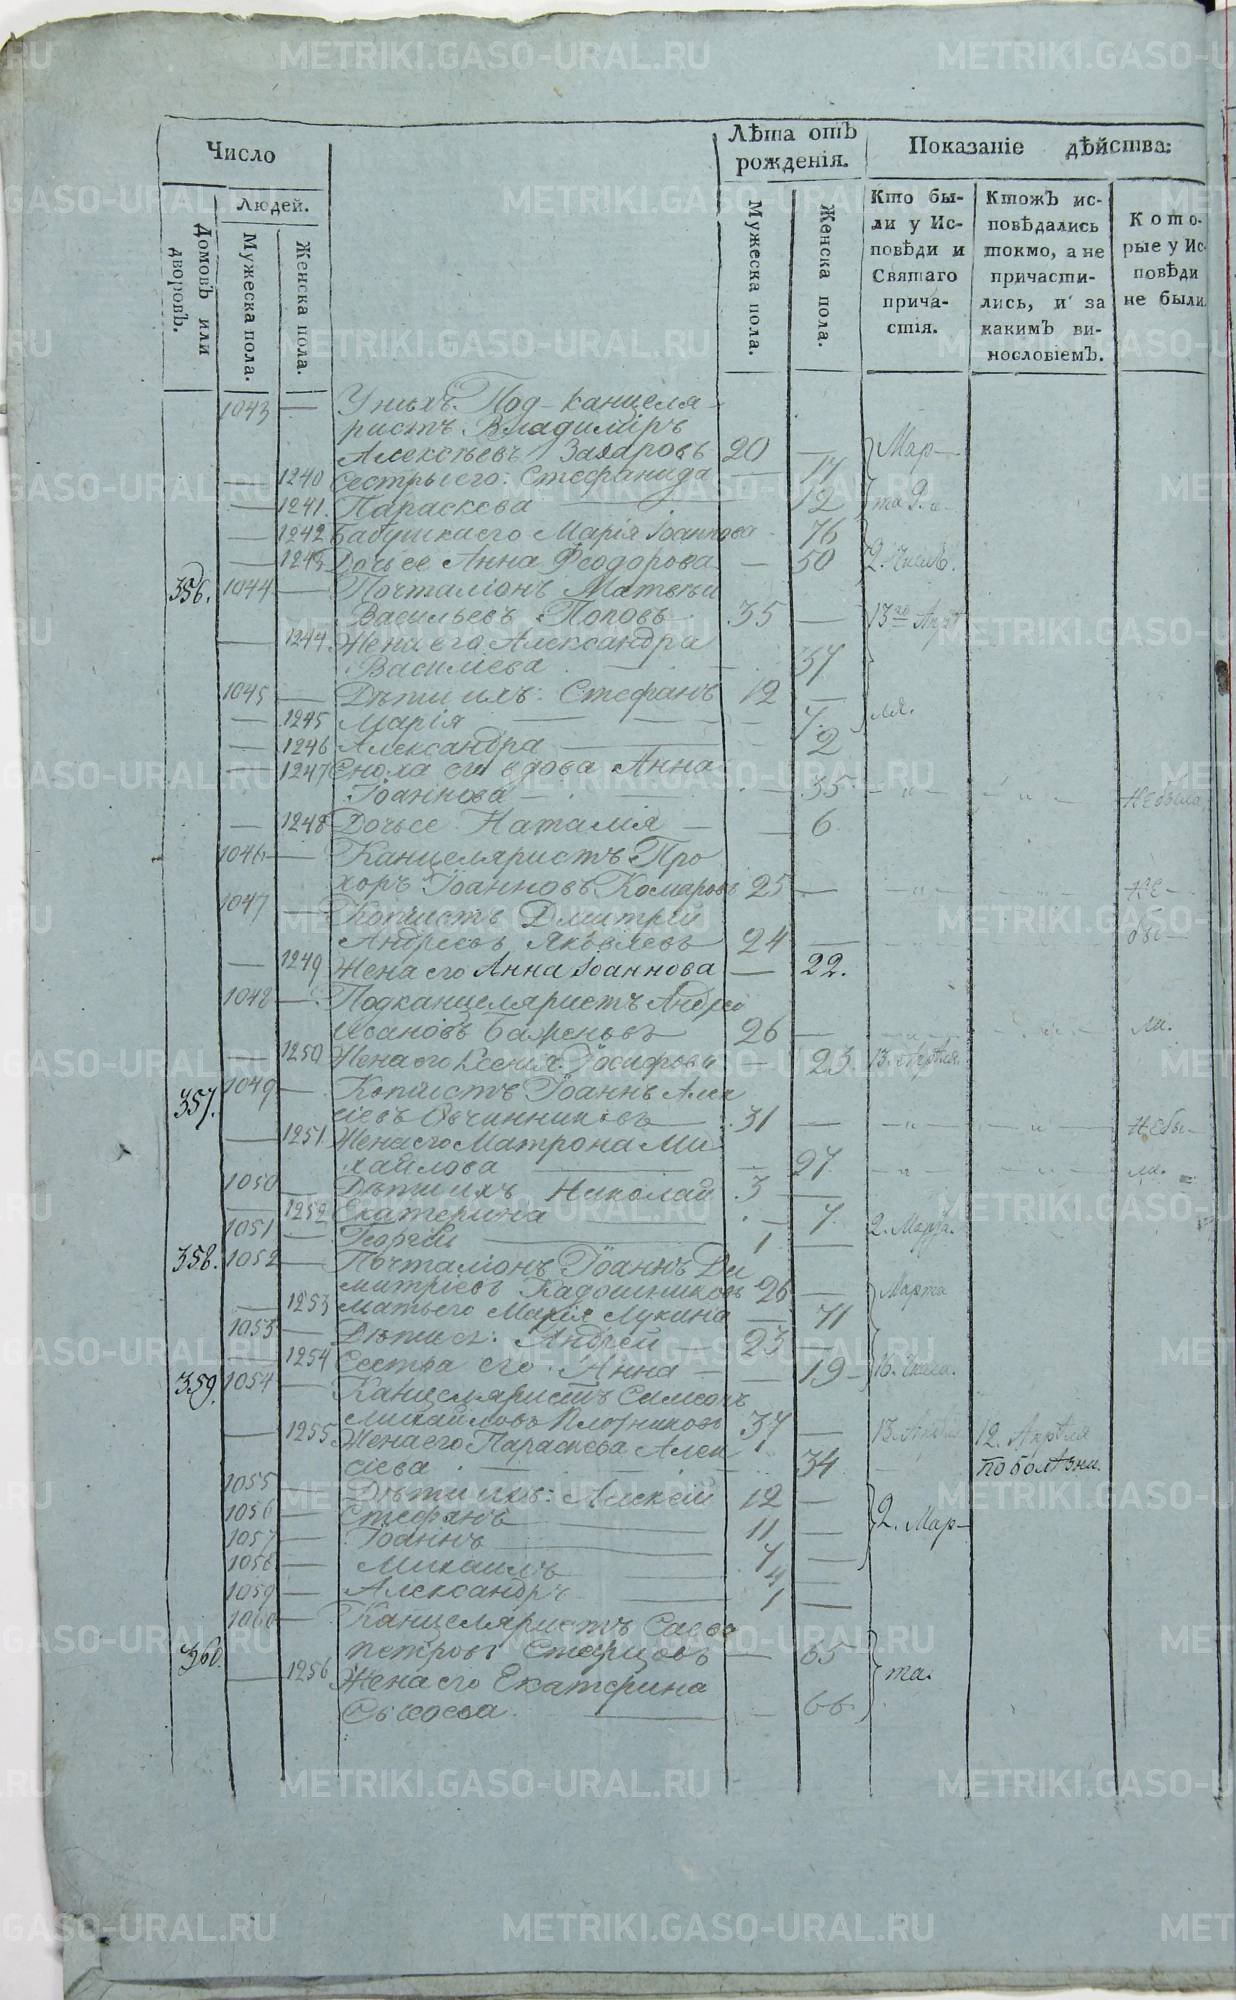 Число
Людей.
Домовъ или дворовъ.
Мужеска пола.
Женска пола.
Лѣта отъ рожденія.
Мужеска пола.
Женска пола.
Показаніе дѣйства:
Кто бы-
ли у Ис-
повѣди и
Святаго
прича-
стія.
Ктожъ ис-
повѣдались
токмо, а не
причасти-
лись, и за
какимъ ви-
нословіемъ.
Кото-
рые у Ис-
повѣди
не были.
1043 — У нихъ Под-канцеля-
ристъ Владиміръ
Алексѣевъ Захаровъ 20 — Мар-
— 1240 Сестры его: Стефанида — 17
— 1241. Параскева — 12 та 9. и
— 1242 Бабушка его Марія Іоаннова 76
— 1243 Дочь ее Анна Ѳеодорова — 50 2. числ.
356. 1044 — Почталіонъ Матвѣй
Васильевъ Поповъ 35 — 13го Апрѣ
— 1244 Жена его Александра
Васильева — 37
1045 — Дѣти ихъ: Стефанъ 12 —
— 1245 Марія — 7. ля.
— 1246 Александра — 2
— 1247 Сноха ея вдова Анна
Іоаннова — 35 — „ — „ — не была
— 1248 Дочь ее Наталія — 6
1046 — Канцеляристъ Про
хоръ Іоанновъ Комаровъ 25 — не —
1047 — Копіистъ Дмитрей
Андреевъ Яковлевъ 24 — бы —
— 1249 Жена его Анна Іоаннова — 22.
1048 — Подканцеляристъ Андрей
Ивановъ Баженовъ 26 — ли.
— 1250 Жена его Ксенія Іосифова — 23 13. Апрѣля.
357. 1049 — Копіистъ Іоаннъ Алек
сіевъ Овчинниковъ 31 — „ — „ — не бы —
— 1251 Жена его Матрона Ми
хайлова — 27 — ли.
1050 — Дѣти ихъ Николай 3 —
— 1252 Екатерина — 7 2. Марта.
1051 — Георгій 1 —
358. 1052 — Почталіонъ Іоаннъ Ди
митріевъ Кадошниковъ 26 — Марта
— 1253 Мать его Марія Лукина — 71
1053 — Дѣти ея: Андрей 23 —
— 1254 Сестра его Анна — 19 — 16. числа.
359. 1054 — Канцеляристъ Симеонъ
Михайловъ Плотниковъ 37 — 13. Апрѣля 12. Апрѣля
— 1255 Жена его Параскева Алек
сіева — 34 по болѣзни.
1055 — Дѣти ихъ: Алексій 12 —
1056 — Стефанъ 11 — 2. Мар-
1057 — Іоаннъ 7 —
1058 — Михаилъ 4 —
1059 — Александръ 1 —
1060 — Канцеляристъ Савва
360. Петровъ Старцовъ — 65
— 1256 Жена его Екатерина та.
Сысоева — 66
METRIKI.GASO-URAL.RU